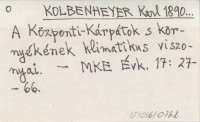 O KOLBENHEYER Karl 1890...
A Központi-Kárpátok s kör-
nyékének klimatikus viszo-
nyai. — MKE Évk. 17: 27-
-66.